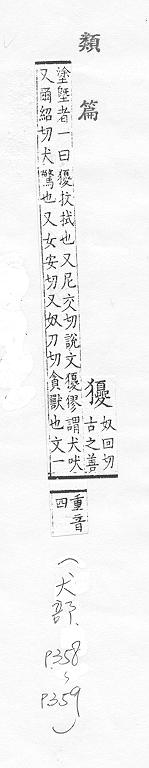 類篇
獿
奴回切
古之善
塗塈者一曰獿抆拭也又尼交切說文獿㺒謂犬吠
又爾紹切犬驚也又女安切又奴刀切貪獸也文一
重音
四
(犬部.
P.358~
P.359)